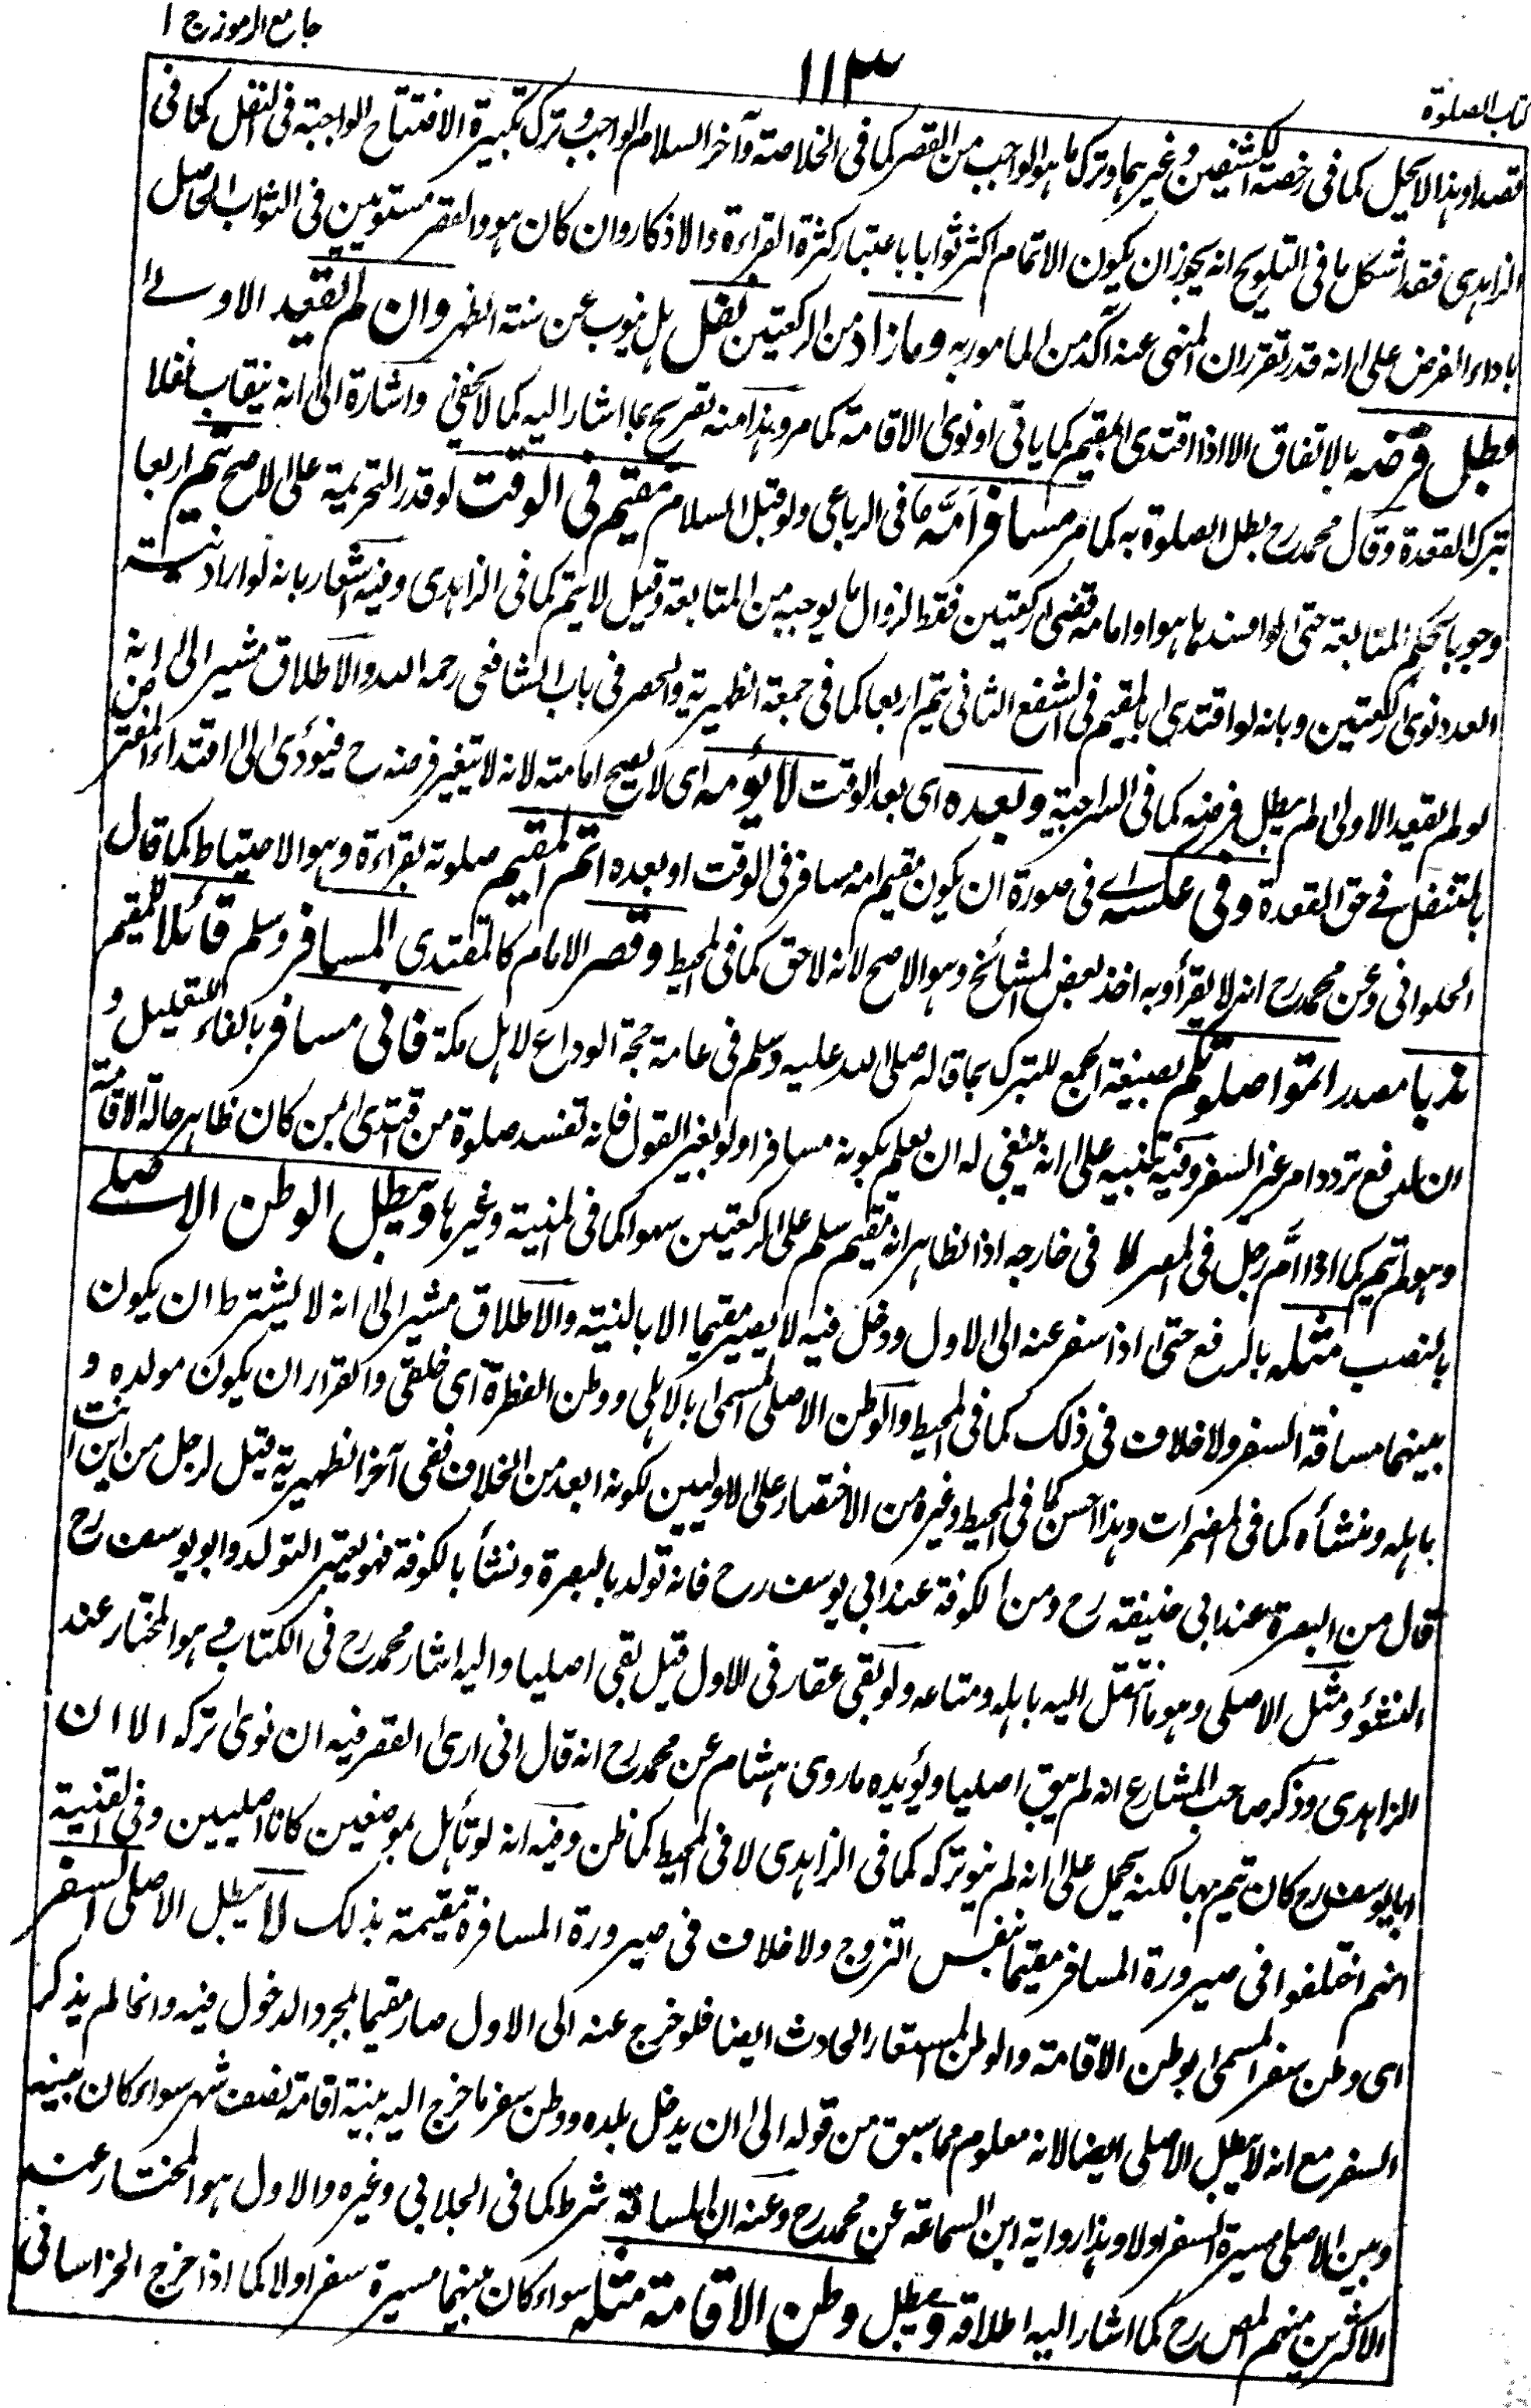 جامع الرموز ج ١
١١٣
كتاب الصلوة
قصدا وهذا لا يحل كما فى رخصة الكشفين وغيرهما وترك ما هو الواجب من القصر كما فى الخلاصة وآخر السلام الواجب وترك تكبيرة الافتتاح الواجبة فى النفل كما فى
الزاهدى فقد اشكل ما فى التلويح انه يجوز ان يكون الاتمام اكثر ثوابا باعتبار كثرة القراءة والاذكار وان كان هو والقصر مستويين فى الثواب الحاصل
باداء الفرض على انه قد تقرر ان المنهى عنه آكد من المامور به وما زاد من الركعتين نفل بل ينوب عن سنة الظهر وان لم يقعد الاولى
بطل فرضه بالاتفاق الا اذا اقتدى بالمقيم كما ياتى او نوى الاقامة كما مر وهذا منه تصريح بما اشار اليه كما لا يخفى واشارة الى انه ينقلب نفلا
بترك القعدة وقال محمد رح بطل الصلوة به كما مر مسافر امه ما فى الرباعى ولو قبل السلام مقيم فى الوقت لو قدر التحريمة على الاصح يتم اربعا
وجوبا بحكم المتابعة حتى لو افسدها هو او امامه قضى ركعتين فقط لزوال ما يوجبه من المتابعة وقيل لا يتم كما فى الزاهدى وفيه اشعار بانه لو اراد نية
العدد نوى ركعتين وبانه لو اقتدى بالمقيم فى الشفع الثانى يتم اربعا كما فى جمعة الظهيرية والحصر فى باب الشافعى رحمه الله والاطلاق مشير الى انه
لو لم يقعد الاولى لم يبطل فرضه كما فى السراجية وبعده اى بعد الوقت لا يؤمه اى لا يصح امامته لانه لا يتغير فرضه ح فيؤدى الى اقتداء المفترض
بالمتنفل فى حق القعدة وفى عكسه اى فى صورة ان يكون مقيم امه مسافر فى الوقت او بعده اتم المقيم صلوته بقراءة وهو الاحتياط كما قال
الحلوانى وعن محمد رح انه لا يقرأ وبه اخذ بعض المشائخ وهو الاصح لانه لاحق كما فى المحيط وقصر الامام كالمقتدى المسافر وسلم قائلا للمقيم
ندبا مصدر اتموا صلوتكم بصيغة الجمع للتبرك بما قاله صلى الله عليه وسلم فى عامة حجة الوداع لاهل مكة فانى مسافر بالفاء للتعليل و
ان لدفع تردد امر عز السفر وفيه تنبيه على انه ينبغى له ان يعلم بكونه مسافرا ولو بغير القول فانه تفسد صلوة من اقتدى بمن كان ظاهر حاله الاقامة
وهو لم يتم كما اذا ام رجل فى المصر لا فى خارجه اذ الظاهر انه مقيم سلم على الركعتين سهوا كما فى المنية وغيرها ويبطل الوطن الاصلى
بالنصب مثله بالرفع حتى اذا سفر عنه الى الاول ودخل فيه لا يصير مقيما الا بالنية والاطلاق مشير الى انه لا يشترط ان يكون
بينهما مسافة السفر ولا خلاف فى ذلك كما فى المحيط والوطن الاصلى المسمى بالاهلى ووطن الفطرة اى خلقى والقرار ان يكون مولده و
باهله ومنشأه كما فى المضمرات وهذا احسن كما فى المحيط وغيره من الاختصار على الاوليين لكونه ابعد من الخلاف ففى آخر الظهيرية قيل لرجل من اين انت
قال من البصرة عند ابى حنيفة رح ومن الكوفة عند ابى يوسف رح فانه تولد بالبصرة ونشأ بالكوفة فهو يعتبر التولد وابو يوسف رح
النشؤ ومثل الاصلى وهو ما انتقل اليه باهله ومتاعه ولو بقى عقار فى الاول قيل بقى اصليا واليه اشار محمد رح فى الكتاب هو المختار عند
الزاهدى وذكر صاحب المشارع انه لم يبق اصليا ويؤيده ما روى هشام عن محمد رح انه قال انى ارى القصر فيه ان نوى تركه الا ان
ابا يوسف رح كان يتم بها لكنه يحمل على انه لم ينو تركه كما فى الزاهدى لا فى المحيط كما ظن وفيه انه لو تأهل بموضعين كانا اصليين وفى القنية
انهم اختلفوا فى صيرورة المسافر مقيما بنفس التزوج ولا خلاف فى صيرورة المسافرة مقيمة بذلك لا يبطل الاصلى السفر
اى وطن سفر المسمى بوطن الاقامة والوطن المستعار الحادث ايضا فلو خرج عنه الى الاول صار مقيما بمجرد الدخول فيه وانما لم يذكر
السفر مع انه لا يبطل الاصلى ايضا لانه معلوم مما سبق من قوله الى ان يدخل بلده ووطن سفر ما خرج اليه بنية اقامة نصف شهر سواء كان بينه
وبين الاصلى مسيرة السفر او لا وهذا رواية ابن السماعة عن محمد رح وعنه ان المسافة شرط كما فى الجلابى وغيره والاول هو المختار عند
الاكثرين منهم المص رح كما اشار اليه اطلاقه ويبطل وطن الاقامة مثله سواء كان بينهما مسيرة سفر او لا كما اذا خرج الخراسانى